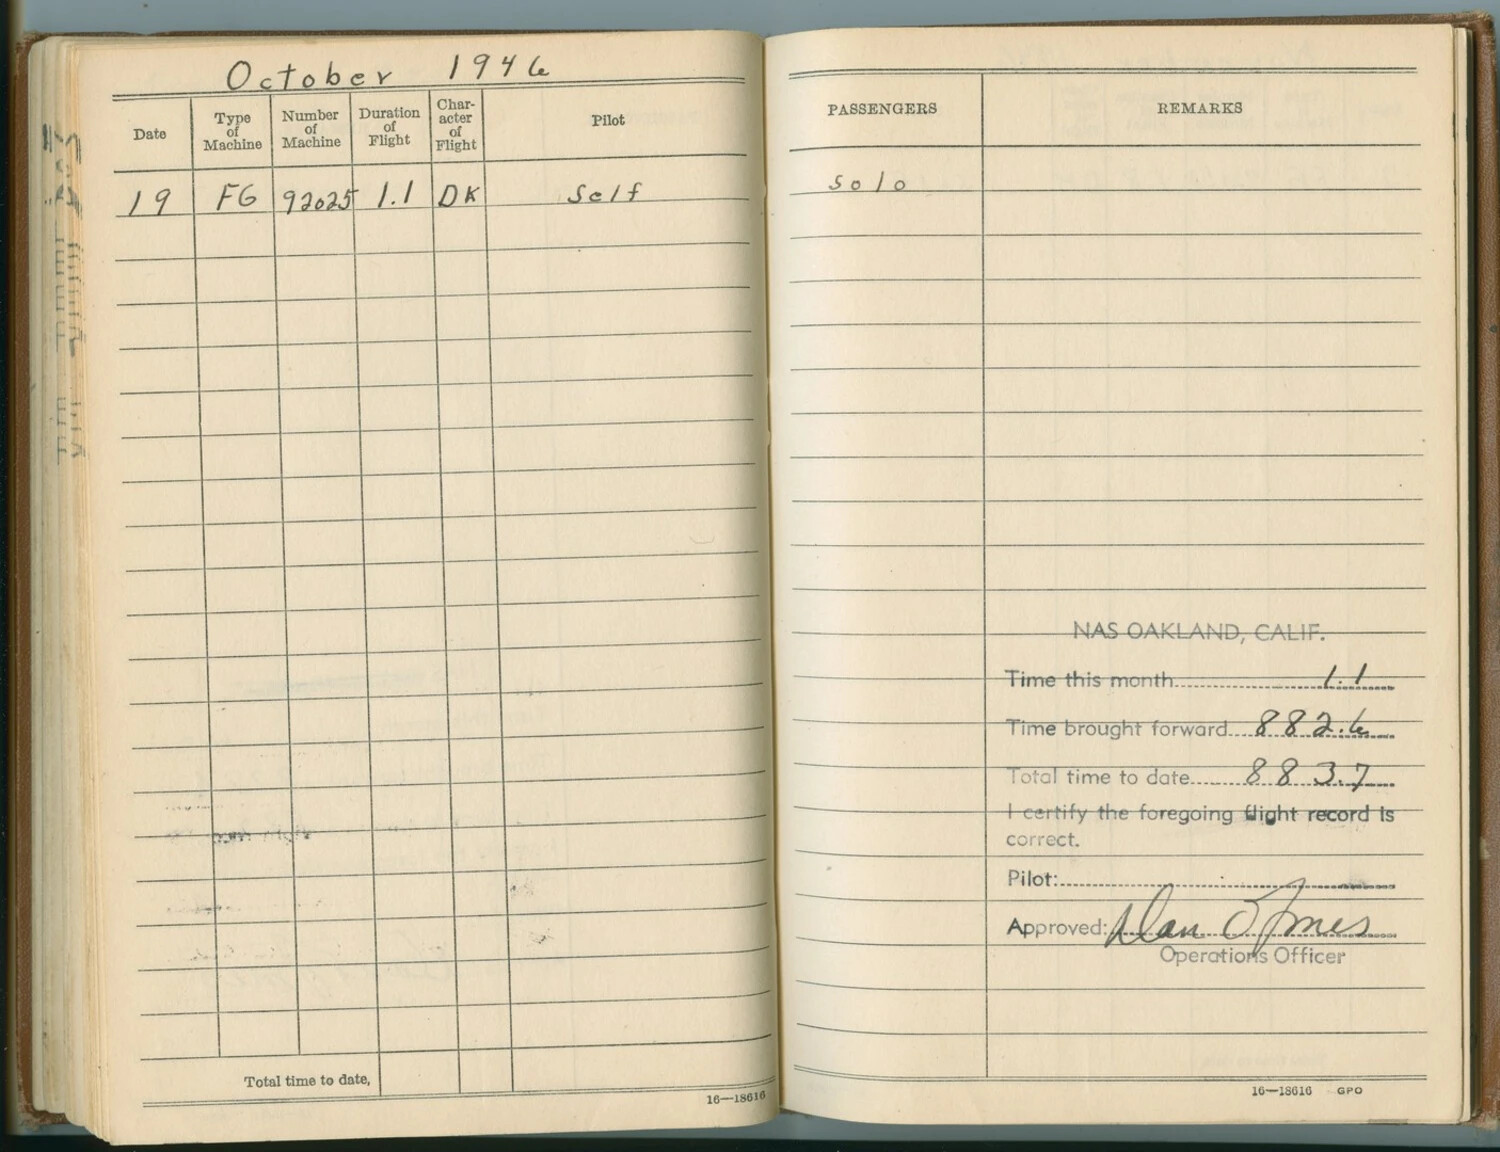 October 1946
Date Type of Machine Number of Machine Duration of Flight Char-acter of Flight Pilot
19 FG 92025 1.1 DK Self
Total time to date,
16—18616
PASSENGERS REMARKS
Solo
NAS OAKLAND, CALIF.
Time this month 1.1
Time brought forward 882.6
Total time to date 883.7
I certify the foregoing flight record is
correct.
Pilot:
Approved: Dan O Jones
Operations Officer
16—18616 GPO